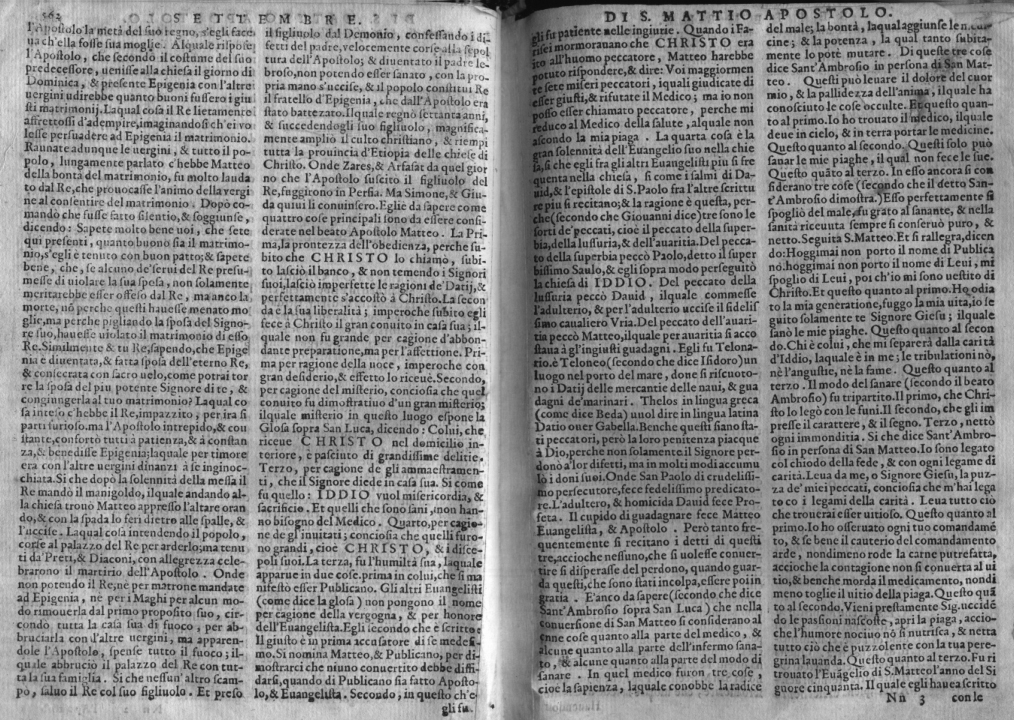 562 SETTEMBRE.
l'Apostolo la metà del suo regno, s'egli faceua
ch'ella fosse sua moglie. Alquale rispose
l'Apostolo, che secondo il costume del suo
predecessore, uenisse alla chiesa il giorno di
Dominica, & presente Epigenia con l'altre
uergini udirebbe quanto buoni fussero i giu
sti matrimonij. Laqual cosa il Re lietamente
affrettossi d'adempire, imaginandosi ch'ei vo
lesse persuadere ad Epigenia il matrimonio.
Raunate adunque le uergini, & tutto il po-
polo, lungamente parlato c'hebbe Matteo
della bontà del matrimonio, fu molto lauda
to dal Re, che prouocasse l'animo della vergi
ne al consentire del matrimonio. Dopò co-
mandò che fusse fatto silentio, & soggiunse,
dicendo: Sapete molto bene uoi, che sete
qui presenti, quanto buono sia il matrimo-
nio, s'egli è tenuto con buon patto; & sapete
bene, che, se alcuno de'serui del Re presu-
messe di uiolare la sua sposa, non solamente
meritarebbe esser offeso dal Re, ma anco la
morte, nò perche questi hauesse menato mo
glie, ma perche pigliando la sposa del Signo-
re suo, hauesse uiolato il matrimonio di esso
Re. Simulmente & tu Re, sapendo, che Epige
nia è diuentata, & fatta sposa dell'eterno Re,
& consecrata con sacro uelo, come potrai tor
re la sposa del piu potente Signore di te, &
congiungerla al tuo matrimonio? Laqual co
sa inteso c'hebbe il Re, impazzito; per ira si
partì furioso. ma l'Apostolo intrepido, & con
stante, confortò tutti à patienza, & à constan
za, & benedisse Epigenia; laquale per timore
era con l'altre uergini dinanzi à se inginoc-
chiata. Si che dopo la solennità della messa il
Re mandò il manigoldo, ilquale andando al-
la chiesa trouò Matteo appresso l'altare oran
do, & con la spada lo ferì dietro alle spalle, &
l'uccise. Laqual cosa intendendo il popolo,
corse al palazzo del Re per arderlo; ma tenu
ti da'Preti, & Diaconi, con allegrezza cele-
brarono il martirio dell'Apostolo. Onde
non potendo il Re, nè per matrone mandate
ad Epigenia, nè per i Maghi per alcun mo-
do rimouerla dal primo proposito suo, cir-
condò tutta la casa sua di fuoco, per ab-
bruciarla con l'altre uergini, ma apparen-
dole l'Apostolo, spense tutto il fuoco; il-
quale abbruciò il palazzo del Re con tut-
ta la sua famiglia. Si che nessun'altro scam-
pò, saluo il Re col suo figliuolo. Et preso
il figliuolo dal Demonio, confessando i di-
fetti del padre, velocemente corse alla sepol
tura dell'Apostolo; & diuentato il padre le-
broso, non potendo esser sanato, con la pro-
pria mano s'uccise, & il popolo constituì Re
il fratello d'Epigenia, che dall'Apostolo era
stato battezato. Ilquale regnò settanta anni,
& succedendogli suo figliuolo, magnifica-
mente ampliò il culto christiano, & riempì
tutta la prouincia d'Etiopia delle chiese di
Christo. Onde Zares, & Arfasat da quel gior
no che l'Apostolo suscitò il figliuolo del
Re, fuggirono in Persia. Ma Simone, & Giu-
da quiui li conuinsero. Egli è da sapere come
quattro cose principali sono da essere consi-
derate nel beato Apostolo Matteo. La Pri-
ma, la prontezza dell'obedienza, perche su-
bito che CHRISTO lo chiamò, subi-
to lasciò il banco, & non temendo i Signori
suoi, lasciò imperfette le ragioni de'Datij, &
perfettamente s'accostò à Christo. La secon
da è la sua liberalità; imperoche subito egli
fece à Christo il gran conuito in casa sua; il-
quale non fu grande per cagione d'abbon-
dante preparatione, ma per l'affettione. Pri-
ma per ragione della uoce, imperoche con
gran desiderio, & effetto lo riceuè. Secondo,
per cagione del misterio, conciosia che quel
conuito fu dimostratiuo d'un gran misterio;
ilquale misterio in questo luogo espone la
Glosa sopra San Luca, dicendo: Colui, che
riceue CHRISTO nel domicilio in-
teriore, è pasciuto di grandissime delitie.
Terzo, per cagione de gli ammaestramen-
ti, che il Signore diede in casa sua. Si come
fu quello: IDDIO vuol misericordia, &
sacrificio. Et quelli che sono sani, non han-
no bisogno del Medico. Quarto, per cagio-
ne de gl'inuitati; conciosia che quelli furo-
no grandi, cioè CHRISTO, & i disce-
poli suoi. La terza, fu l'humiltà sua, laquale
apparue in due cose. prima in colui, che si ma
nifestò esser Publicano. Gli altri Euangelisti
(come dice la glosa) non pongono il nome
per cagione della vergogna, & per honore
dell'Euangelista. Egli secondo che è scritto:
Il giusto è in prima accusatore di se medesi-
mo. Si nomina Matteo, & Publicano, per di-
mostrarci che niuno conuertito debbe diffi-
darsi, quando di Publicano sia fatto Aposto-
lo, & Euangelista. Secondo, in questo ch'e-
gli fu.
DI S. MATTIO APOSTOLO.
gli fu patiente nelle ingiurie. Quando i Fa-
risei mormorauano che CHRISTO era
ito all'huomo peccatore, Matteo harebbe
potuto rispondere, & dire: Voi maggiormen
te sete miseri peccatori, iquali giudicate di
esser giusti, & rifutate il Medico; ma io non
posso esser chiamato peccatore, perche mi
reduco al Medico della salute, alquale non
ascondo la mia piaga. La quarta cosa è la
gran solennità dell'Euangelio suo nella chie
sa, si che egli fra gli altri Euangelisti piu si fre
quenta nella chiesa, si come i salmi di Da-
uid, & l'epistole di S. Paolo fra l'altre scrittu
re piu si recitano; & la ragione è questa, per-
che (secondo che Giouanni dice) tre sono le
sorti de'peccati, cioè il peccato della super-
bia, della lussuria, & dell'auaritia. Del pecca-
to della superbia peccò Paolo, detto il super
bissimo Saulo, & egli sopra modo perseguitò
la chiesa di IDDIO. Del peccato della
lussuria peccò Dauid, ilquale commesse
l'adulterio, & per l'adulterio uccise il fidelis
simo caualiero Vria. Del peccato dell'auari-
tia peccò Matteo, ilquale per auaritia si acco
staua à gl'ingiusti guadagni. Egli fu Telona-
rio. è Teloneo (secondo che dice Isidoro) un
luogo nel porto del mare, doue si riscuoto-
no i Datij delle mercantie delle naui, & gua
dagni de'marinari. Thelos in lingua greca
(come dice Beda) uuol dire in lingua latina
Datio ouer Gabella. Benche questi siano sta-
ti peccatori, però la loro penitenza piacque
à Dio, perche non solamente il Signore per-
donò a'lor difetti, ma in molti modi accumu
lò i doni suoi. Onde San Paolo di crudelissi-
mo persecutore, fece fedelissimo predicato-
re. L'adultero, & homicida Dauid fece Pro-
feta. Il cupido di guadagnare fece Matteo
Euangelista, & Apostolo. Però tanto fre-
quentemente si recitano i detti di questi
tre, accioche nessuno, che si uolesse conuer-
tire si disperasse del perdono, quando guar-
da questi, che sono stati in colpa, essere poi in
gratia. E'anco da sapere (secondo che dice
Sant'Ambrosio sopra San Luca) che nella
conuersione di San Matteo si considerano al
cune cose quanto alla parte del medico, &
alcune quanto alla parte dell'infermo sana-
to, & alcune quanto alla parte del modo di
sanare. In quel medico furon tre cose,
cioè la sapienza, laquale conobbe la radice
del male; la bontà, laqual aggiunse le medi-
cine; & la potenza, la qual tanto subita-
mente lo potè mutare. Di queste tre cose
dice Sant'Ambrosio in persona di San Mat-
teo. Questi può leuare il dolore del cuor
mio, & la pallidezza dell'anima, ilquale ha
conosciuto le cose occulte. Et questo quan-
to al primo. Io ho trouato il medico, ilquale
deue in cielo, & in terra portar le medicine.
Questo quanto al secondo. Questi solo può
sanar le mie piaghe, il qual non fece le sue.
Questo quāto al terzo. In esso ancora si con
siderano tre cose (secondo che il detto San-
t'Ambrosio dimostra.) Esso perfettamente si
spogliò del male, fu grato al sanante, & nella
sanità riceuuta sempre si conseruò puro, &
netto. Seguità S. Matteo. Et si rallegra, dicen
do: Hoggimai non porto il nome di Publica
no. hoggimai non porto il nome di Leui, mi
spoglio di Leui, poi ch'io mi sono uestito di
Christo. Et questo quanto al primo. Ho odia
to la mia generatione, fuggo la mia uita, io se
guito solamente te Signore Giesu; ilquale
sanò le mie piaghe. Questo quanto al secon
do. Chi è colui, che mi separerà dalla carità
d'Iddio, laquale è in me; le tribulationi nò,
nè l'angustie, nè la fame. Questo quanto al
terzo. Il modo del sanare (secondo il beato
Ambrosio) fu tripartito. Il primo, che Chri-
sto lo legò con le funi. Il secondo, che gli im
presse il carattere, & il segno. Terzo, nettò
ogni immonditia. Si che dice Sant'Ambro-
sio in persona di San Matteo. Io sono legato
col chiodo della fede, & con ogni legame di
carità. Leua da me, o Signore Giesu, la puz-
za de'miei peccati, conciosia che m'hai lega
to co i legami della carità. Leua tutto ciò
che trouerai esser uitioso. Questo quanto al
primo. Io ho osseruato ogni tuo comandamē
to, & se bene il cauterio del comandamento
arde, nondimeno rode la carne putrefatta,
accioche la contagione non si conuerta al ui
tio, & benche morda il medicamento, nondi
meno toglie il uitio della piaga. Questo quā
to al secondo. Vieni prestamente Sig. uccidē
do le passioni nascoste, apri la piaga, accio-
che l'humore nociuo nō si nutrisca, & netta
tutto ciò che è puzzolente con la tua pere-
grina lauanda. Questo quanto al terzo. Fu ri
trouato l'Euāgelio di S. Matteo l'anno del Si
gnore cinquanta. Il quale egli hauea scritto
Nn 3 con le